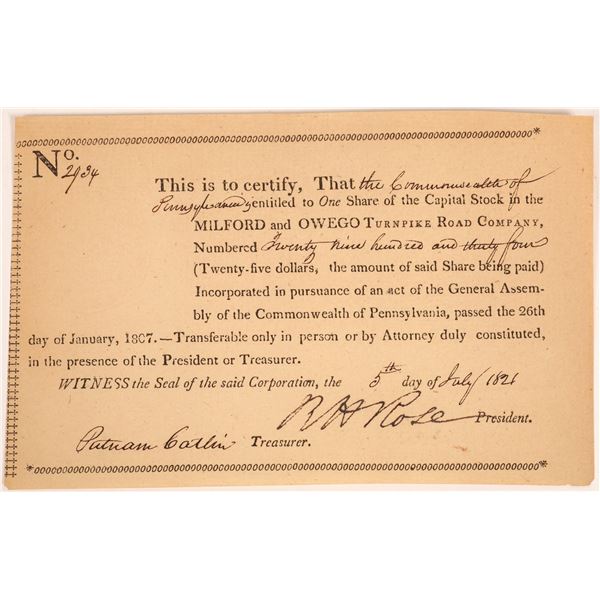 No.
2934
This is to certify, That the Commonwealth of
Pennsylvania is entitled to One Share of the Capital Stock in the
MILFORD and OWEGO TURNPIKE ROAD COMPANY,
Numbered Twenty nine hundred and thirty four
(Twenty-five dollars, the amount of said Share being paid)
Incorporated in pursuance of an act of the General Assem-
bly of the Commonwealth of Pennsylvania, passed the 26th
day of January, 1807.—Transferable only in person or by Attorney duly constituted,
in the presence of the President or Treasurer.
WITNESS the Seal of the said Corporation, the 5th day of July 1821
R H Rose President.
Putnam Catlin Treasurer.